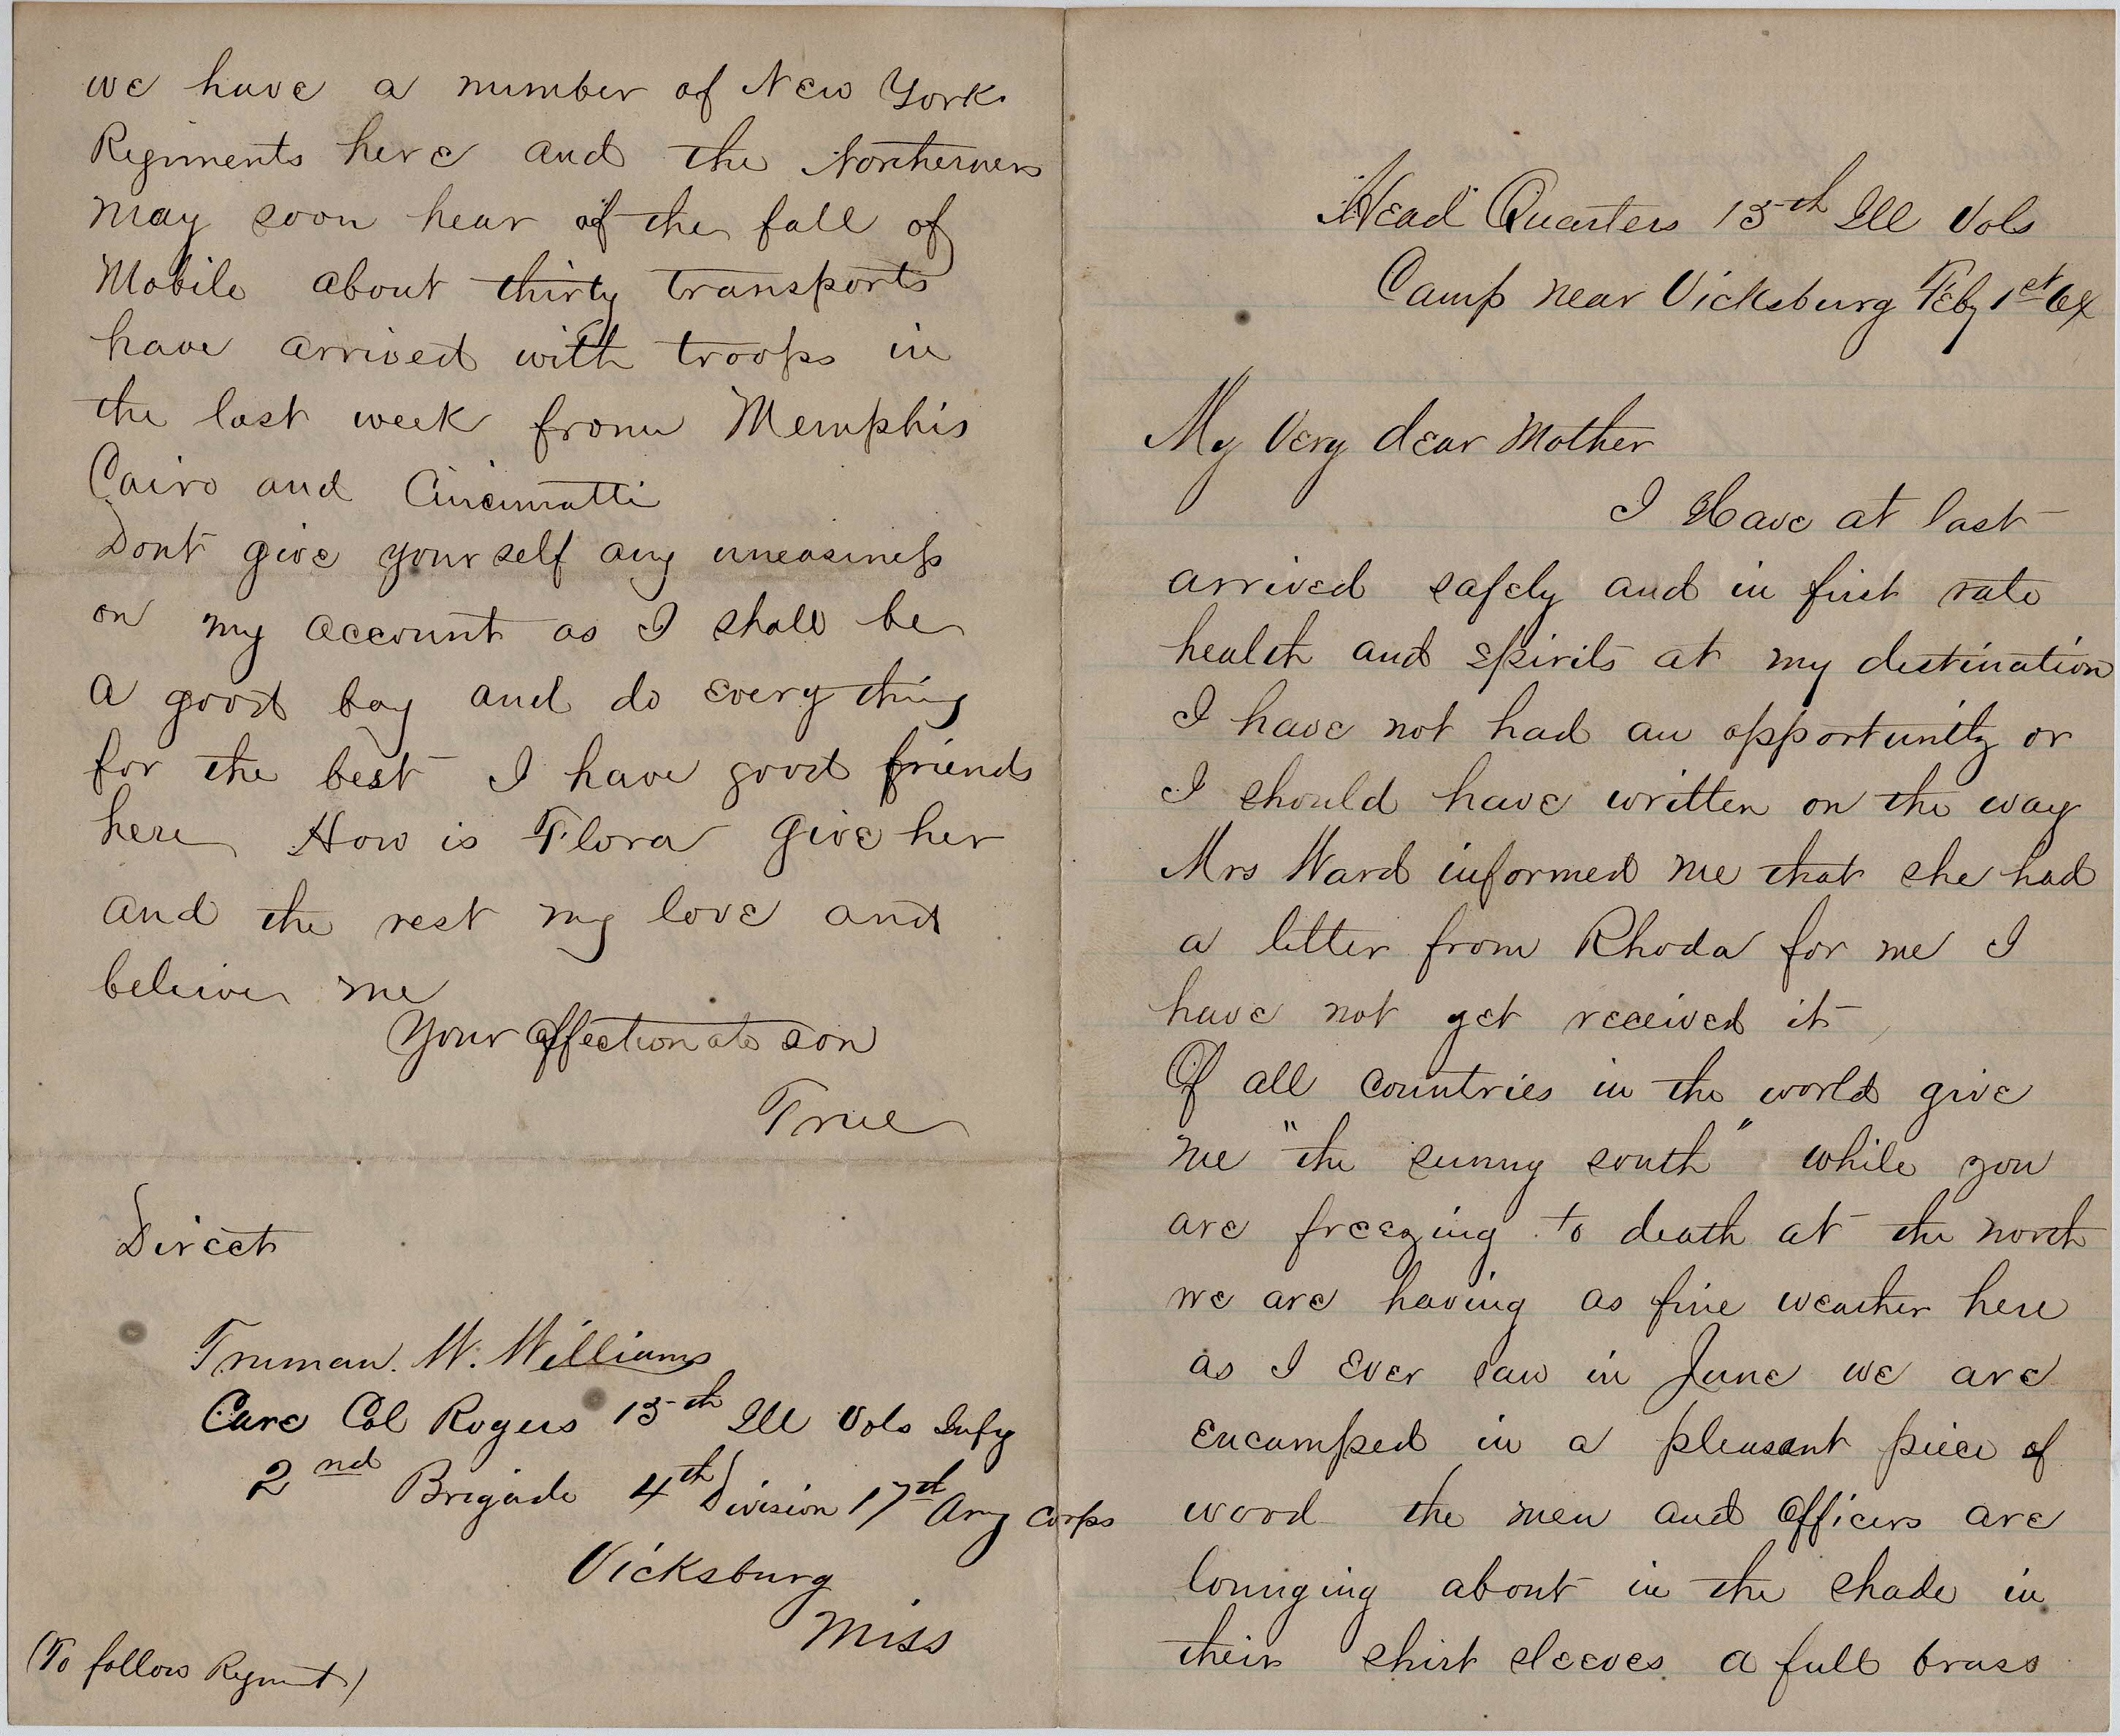 Head Quarters 15th Ill Vols
Camp near Vicksburg Feby 1st 64
My Very dear Mother
I Have at last
arrived safely and in first rate
health and spirits at my distination
I have not had an opportunity or
I should have written on the way
Mrs Ward informed me that she had
a letter from Rhoda for me I
have not yet received it
Of all countries in the world give
me "the sunny south" while you
are freezing to death at the north
we are having as fine weather here
as I Ever saw in June we are
encamped in a pleasant piece of
wood the men and Officers are
lounging about in the shade in
their shirt sleeves a full brass
we have a number of New York
Regiments here and the Northerners
may soon hear of the fall of
Mobile about thirty transports
have arrived with troops in
the last week from Memphis
Cairo and Cincinnatti
Dont give yourself any uneasiness
on my account as I shall be
a good boy and do every thing
for the best I have good friends
here How is Flora Give her
and the rest my love and
believe me
Your affectionate son
True
Direct
Truman. W. Williams
Care Col Rogers 15th Ill Vols Infy
2nd Brigade 4th Division 17th Army Corps
Vicksburg
Miss
(To follow Regmt)